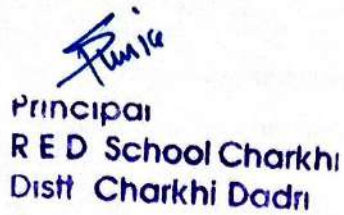 Principal
R E D School Charkhi
Distt Charkhi Dadri